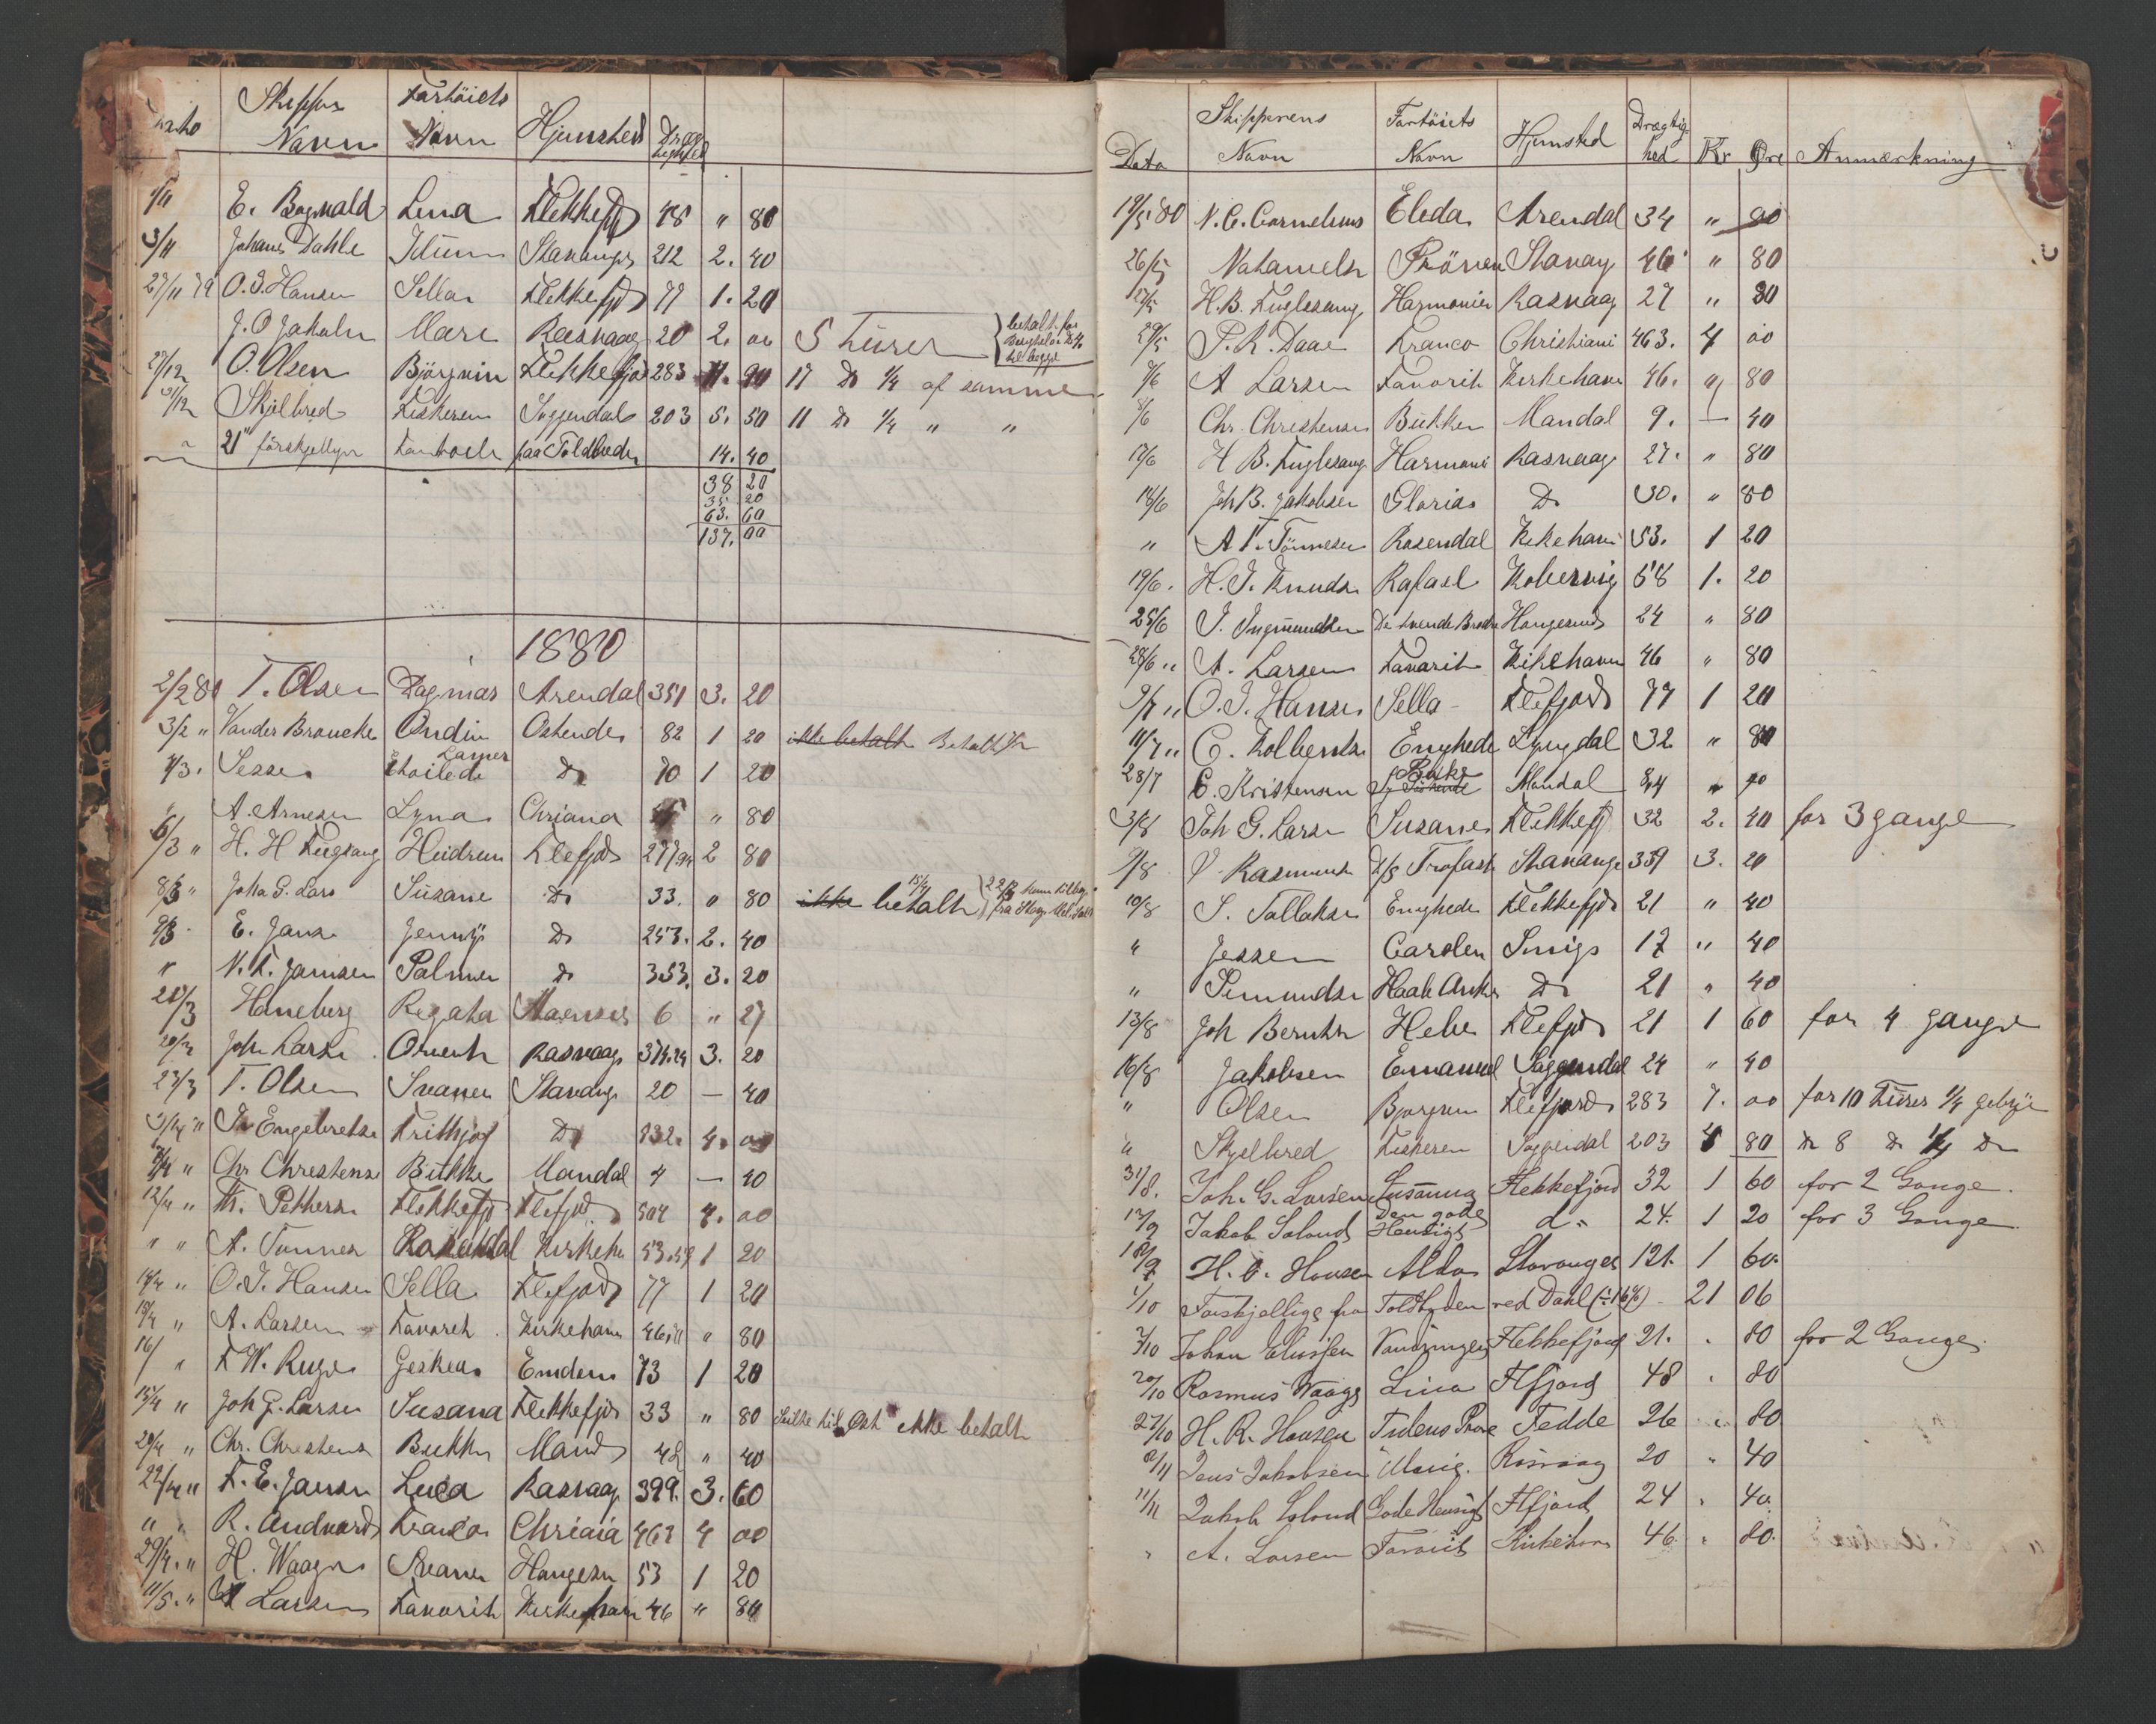 Skippers Fartöiets
Dato Navn Navn Hjemsted Drægtighed
1/11 E. Bognald Lina Flekkefjd 48 " 80
3/11 Johans Dahle Idun Stavanger 212 2. 40
27/11 79 O. I. Hansen Sella Flekkefjd 77 1. 20
J. O Jakobsen Mari Rasvaag 20 2. 00 5 Turer betalt for
27/12 O. Olsen Björgvin Flekkefjd 283 11. 90 17 Do 1/4 af samme
31/12 Skjelbred Fiskeren Soggendal 203 5. 50 11 Do 1/4 " "
" 21 forskjellige paa Toldboden 14. 40
38 20
35 20
63. 60
137. 00
1880
2/2 80 T. Olsen Dagmar Arendal 351 3. 20
3/2 " Vander Broucke Ondin Ostende 82 1 20 ikke betalt Betalt
4/3. Sesse Etoilede Lamer Do 70 1 20
" A. Arnesen Lyna Chriana " 80
6/3 " H. H Fugsang Heidrun Flefjd 277,94 2 80
8/3 " Joha G. Lars Susane Do 33. " 80 ikke betalt 15/4
9/3 E. Jans Jenny Do 253. 2. 40
" N. F. Jansen Palmer Do 353. 3. 20
20/3 Haneburg Regata 6 " 27
20/3 Joh. Larsen Orient Rasvaag 374.24 3. 20
23/3 T. Olsen Svanen Stavang 20 — 40
3/4 " Engebretsen Frithjof Do 932. 4. 00
" Chr Christens Bukke Mandal 4 — 40
12/4 " Th. Pettersen Flekkefjd Flefjd 504 4. 00
" " A. Tonnes Rosendal Kirkeh 53.59 1 20
14/4 " O. I. Hansen Sella Flefjord 77 1 20
15/4 " A. Larsen Favorit Kirkehavn 46 " 80
16/ " F W. Ruge Geskea Emden 73 1 20
15/4 " Joh G. Larsen Susana Flekkefjd 33 " 80 Seilte til Ost ikke betalt
20/4 " Chr. Christens Bukke Mand 4 " 40
22/4 " F. E. Jansen Luca Rasvaag 399. 3. 60
" " R. Andvord Franco Chriania 463 4 00
29/4 " H. Waage Svanen Haugesn 53 1 20
11/5. " A Larsen Favorit Kirkehavn 46 " 80
Skipperens Fartöiets Drægtig-
Dato Navn Navn Hjemsted hed Kr Øre Anmærkning
19/5 80 N. C. Cornelius Eleda Arendal 34 " 80
26/5 Natanielsen Pröven Stavang 46 " 80
27/5 H. B. Fuglesang Harmonien Rasvaag 27 " 80
29/5 P. R. Daae Franco Christiani 463. 4 00
7/6 A Larsen Favorit Kirkehavn 46. " 80
8/6 Chr. Christensen Bukken Mandal 9. — 40
12/6 H B. Fuglesang Harmoni Rasvaag 27. " 80
18/6 Joh B. Jakobsen Gloria Do 30. " 80
" A T. Tönnesen Rosendal Kirkehavn 53. 1 20
19/6. H. I. Knuds. Rafael Kobervig 58 1. 20
25/6 I. Ingmundsen De tvende Brødre Haugesund 24 " 80
28/6 " A. Larsen Favorit Kirkehavn 46 " 80
9/7 " O. I. Hansen Sella Flefjord 77 1 20
11/7 " C. Tolbentsen Enighede Lyngdal 32 " 80
28/7 C. Kristensen Bukke Mandal 4 " 40
3/8 Joh G. Larsen Susane Flekkefj 32 2. 40 for 3 gange
9/8 V Rasmusen D/S Trofast Stavange 359 3. 20
10/8 S. Tallaksen Enighede Flekkefjd 21 " 40
" Jessen Carolen Smigs 17 " 40
" Semundsen Haab Anker Do 21 " 40
13/8 Joh Berntsen Hebe Flefjd 21 1 60 for 4 gange
16/8 Jakobsen Emanuel Soggendal 24 " 40
" Olsen Bjorgvin Flefjord 283 7. 00 for 10 Turer 1/4 gebyr
" Skjelbred Fiskeren Soggendal 203 4 80 Do 8 Do 1/4 Do
31/8. Joh. G. Larsen Susanna Flekkefjord 32 1 60 for 2 Gange.
12/9 Jakob Loland Den gode Hensigt do 24. 1 20 for 3 Gange.
18/9 H. O. Hansen Alda Stavanger 121. 1 60.
1/10 Forskjellige fra Toldboden ved Dahl (÷16%) 21 06
2/10 Johan Eliassen Vandringen Flekkefjord 21. " 80 for 2 Gange.
20/10 Rasmus Waage Lina Flfjord 48 " 80
27/10 H. R. Hansen Tidens Prøve Fedde 26 " 80
8/11 Jens Jakobsen Marie. Rasvaag 20 " 40
11/11 Jakob Loland Gode Hensigt Flfjord 24 " 40.
" A. Larsen Favorit Kirkehavn 46. " 80.